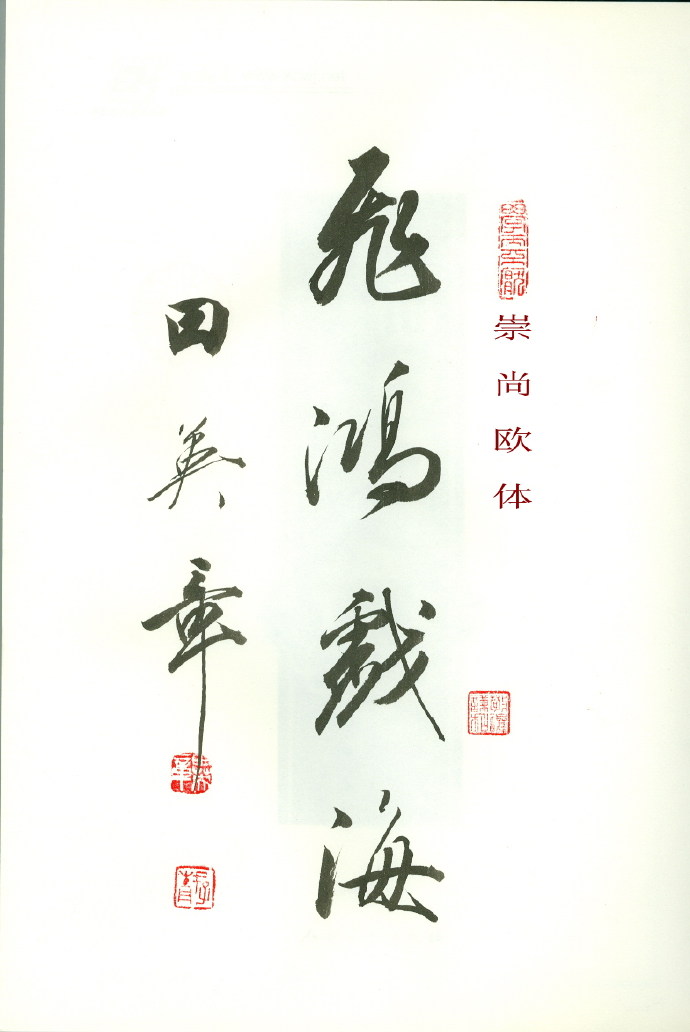 崇尚欧体
飛鴻戲海
田英章